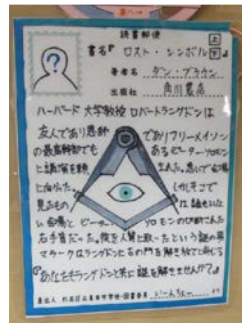 読書郵便
上
下
書名『ロスト・シンボル』
著者名 ダン・ブラウン
出版社 角川書店
?
ハーバード大学教授ロバートラングドンは
友人であり恩師 でありフリーメイソン
の最高幹部でも あるピーターソロモン
に講演を頼 まれた。急いで会場
に向かった。 しかしそこで
見たもの は誰もいな
い会場と ピーター・ソロモンの切断された
右手首だった。彼を人質に取ったという謎の男
マラークはラングドンに の門を解き放てと命じる
『あなたもラングドンと共に謎を解きませんか?』
差出人 杉並区立 中学校・図書委員 いーんちょー より